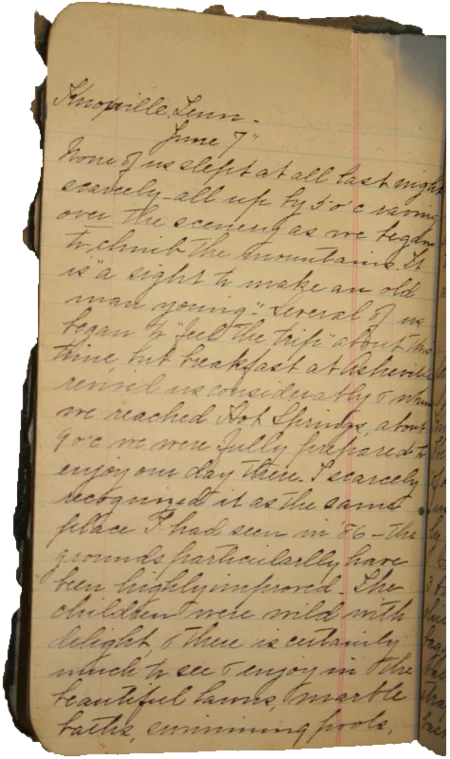 Knoxville, Tenn.
June 7"
None of us slept at all last night
scarcely - all up by 5 o'c raving
over the scenery as we began
to climb the mountains. It
is "a sight to make an old
man young." Several of us
began to "feel the trip" about this
time, but breakfast at Asheville
revived us considerably & when
we reached Hot Springs, about
9 o'c we were fully prepared to
enjoy our day there. I scarcely
recognized it as the same
place I had seen in '86 - the
grounds particularlly have
been highly improved. The
children were wild with
delight, & there is certainly
much to see & enjoy in the
beautiful lawns, marble
baths, swimming pools,